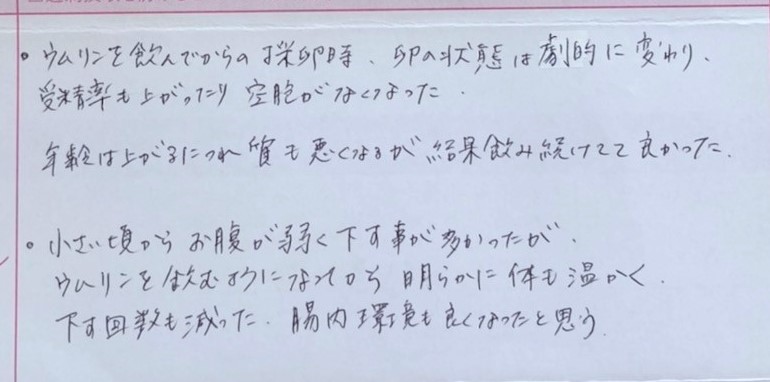 ・ウムリンを飲んでからの採卵時、卵の状態は劇的に変わり、
受精率も上がったり空胞がなくなった。
年齢は上がるにつれ質も悪くなるが結果飲み続けてて良かった。
・小さい頃からお腹が弱く下す事が多かったが、
ウムリンを飲むようになってから明らかに体も温かく、
下す回数も減った。腸内環境も良くなったと思う。